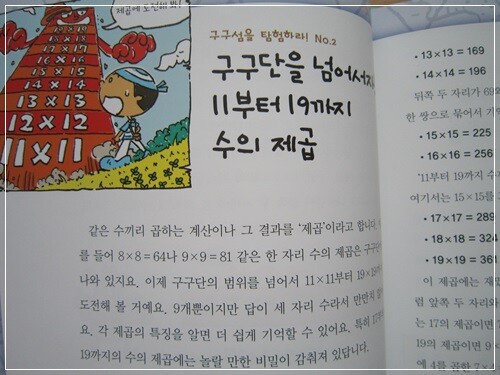 제곱에 도전해 봐!
19 × 19
18 × 18
17 × 17
16 × 16
15 × 15
14 × 14
13 × 13
12 × 12
11 × 11
구구성을 탐험하라! NO.2
구구단을 넘어서자
11부터 19까지
수의 제곱
같은 수끼리 곱하는 계산이나 그 결과를 '제곱'이라고 합니다.
를 들어 8×8=64나 9×9=81 같은 한 자리 수의 제곱은 구구단
나와 있지요. 이제 구구단의 범위를 넘어서 11×11부터 19×19
도전해 볼 거예요. 9개뿐이지만 답이 세 자리 수라서 만만치
요. 각 제곱의 특징을 알면 더 쉽게 기억할 수 있어요. 특히 17
19까지의 수의 제곱에는 놀랄 만한 비밀이 감춰져 있답니다.
• 13×13 = 169
• 14×14 = 196
뒤쪽 두 자리가 69와
한 쌍으로 묶어서 기억
• 15×15 = 225
• 16×16 = 256
'11부터 19까지 수
여기서는 15×15를
• 17×17 = 289
• 18×18 = 324
• 19×19 = 361
이 제곱에는 재있
럼 앞쪽 두 자리와
는 17의 제곱이면
19의 제곱이면 9×
에 4를 곱한 7×